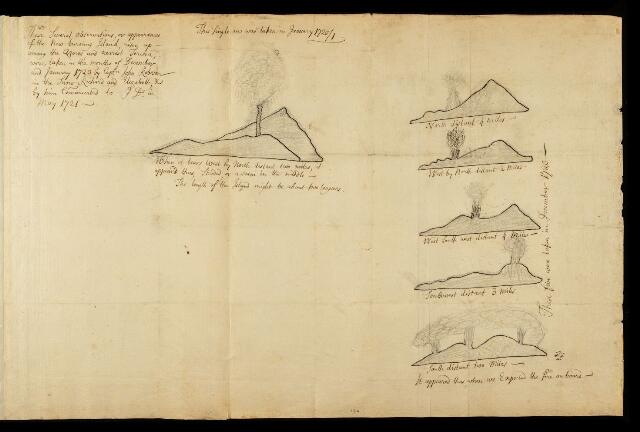 These Several observations, or appearances
of the New burning Island, rising up
among the Azores and nearest Tercera,
were taken in the months of December
and January 1720 by Capt. John Robison
in the Snow Richard and Elizabeth, &
by him Communicated to J
May 1721
This single one was taken in January 1720/1
When it bears West by North distant two miles, it
appeared thus, Divided or a seam in the middle
The length of the Island might be about two leagues
North distant 4 Miles
West by North distant 2 Miles
West South west distant 4 Miles
Southwest distant 3 Miles
South distant two Miles
It appeared thus when we Espied the fire on board
These five were taken in December 1720